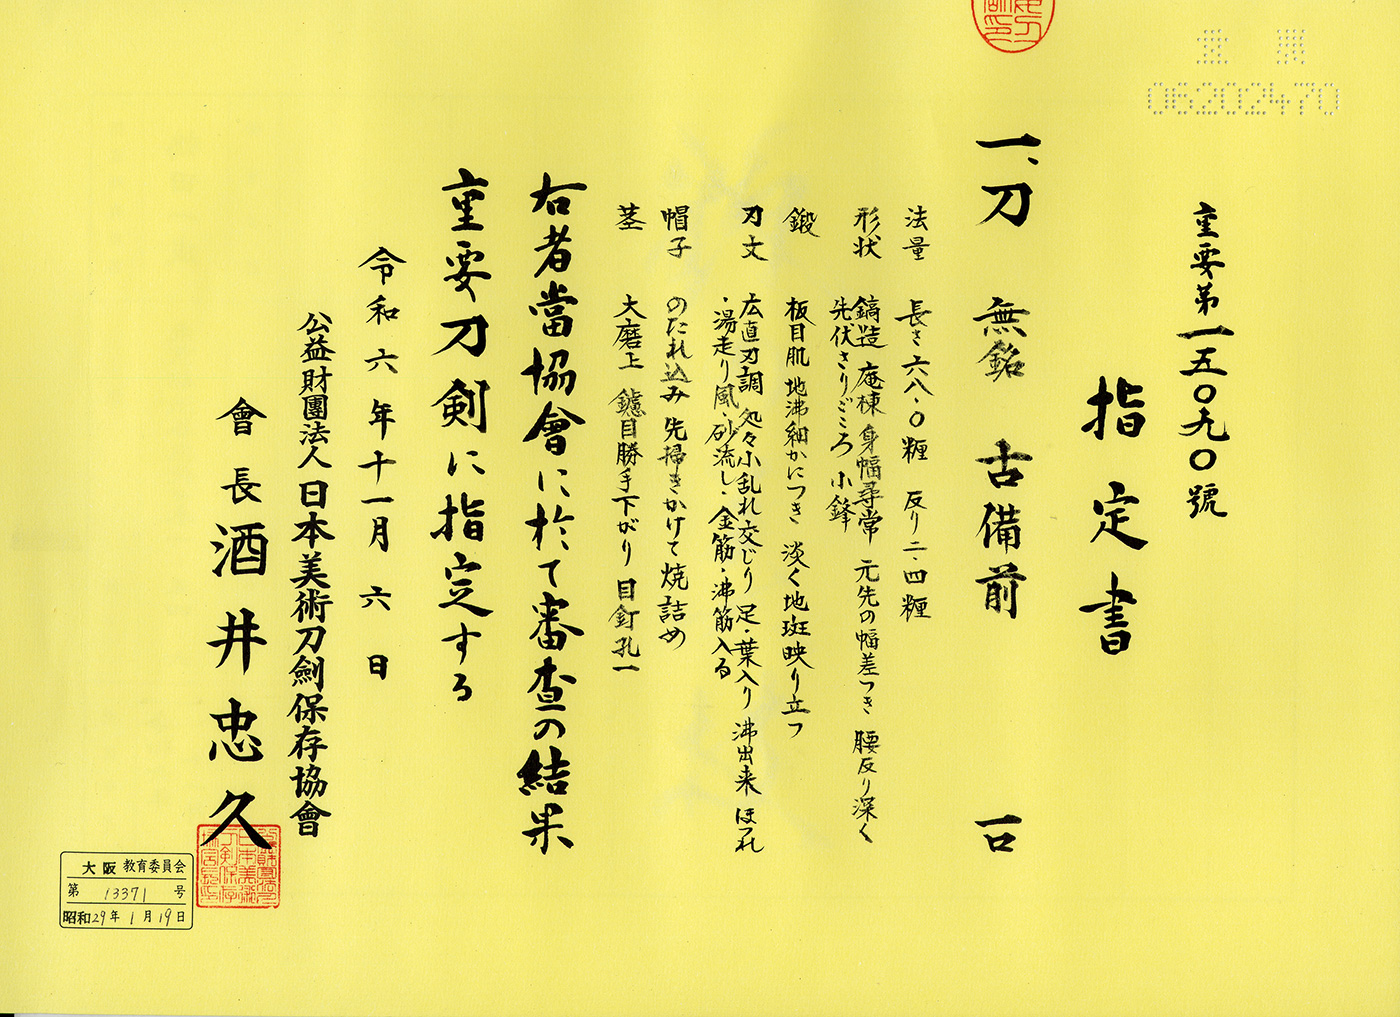 06202470
重要第一五〇九〇號
指定書
一、刀 無銘 古備前 一口
法量 長さ六八・〇糎 反り二・四糎
形状 鎬造 庵棟 身幅尋常 元先の幅差つき 腰反り深く
先伏さりごころ 小鋒
鍛 板目肌 地沸細かにつき 淡く地斑映り立つ
刃文 広直刃調 処々小乱れ交じり 足・葉入り 沸出来 ほつれ
・湯走り風・砂流し・金筋・沸筋入る
帽子 のたれ込み 先掃きかけて焼詰め
茎 大磨上 鑢目勝手下がり 目釘孔一
右者當協會に於て審査の結果
重要刀剣に指定する
令和六年十一月六日
公益財團法人日本美術刀劍保存協會
會長 酒井忠久
大阪 教育委員会
第 13371 号
昭和29年1月19日